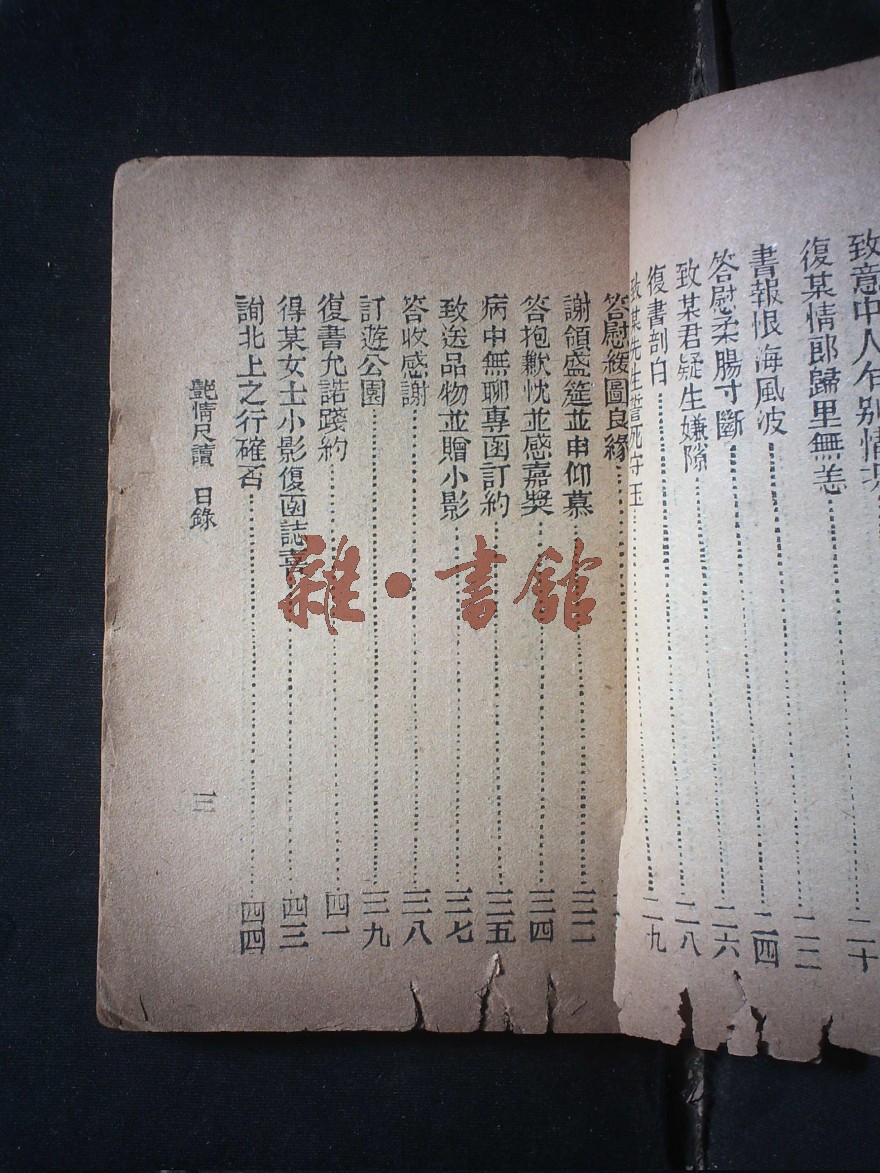 致意中人乍别情況 二十
復某情郎歸里無恙 二三
書報恨海風波 二四
答慰柔腸寸斷 二六
致某君疑生嫌隙 二八
復書剖白 二九
致某先生誓死守玉
答慰緩圖良緣
謝領盛筵並申仰慕 三二
答抱歉忱並感嘉獎 三四
病中無聊專函訂約 三五
致送品物並贈小影 三七
答收感謝 三八
訂遊公園 三九
復書允諾踐約 四一
得某女士小影復函誌喜 四三
詢北上之行確否 四四
艷情尺牘 目錄
三
雜·書館